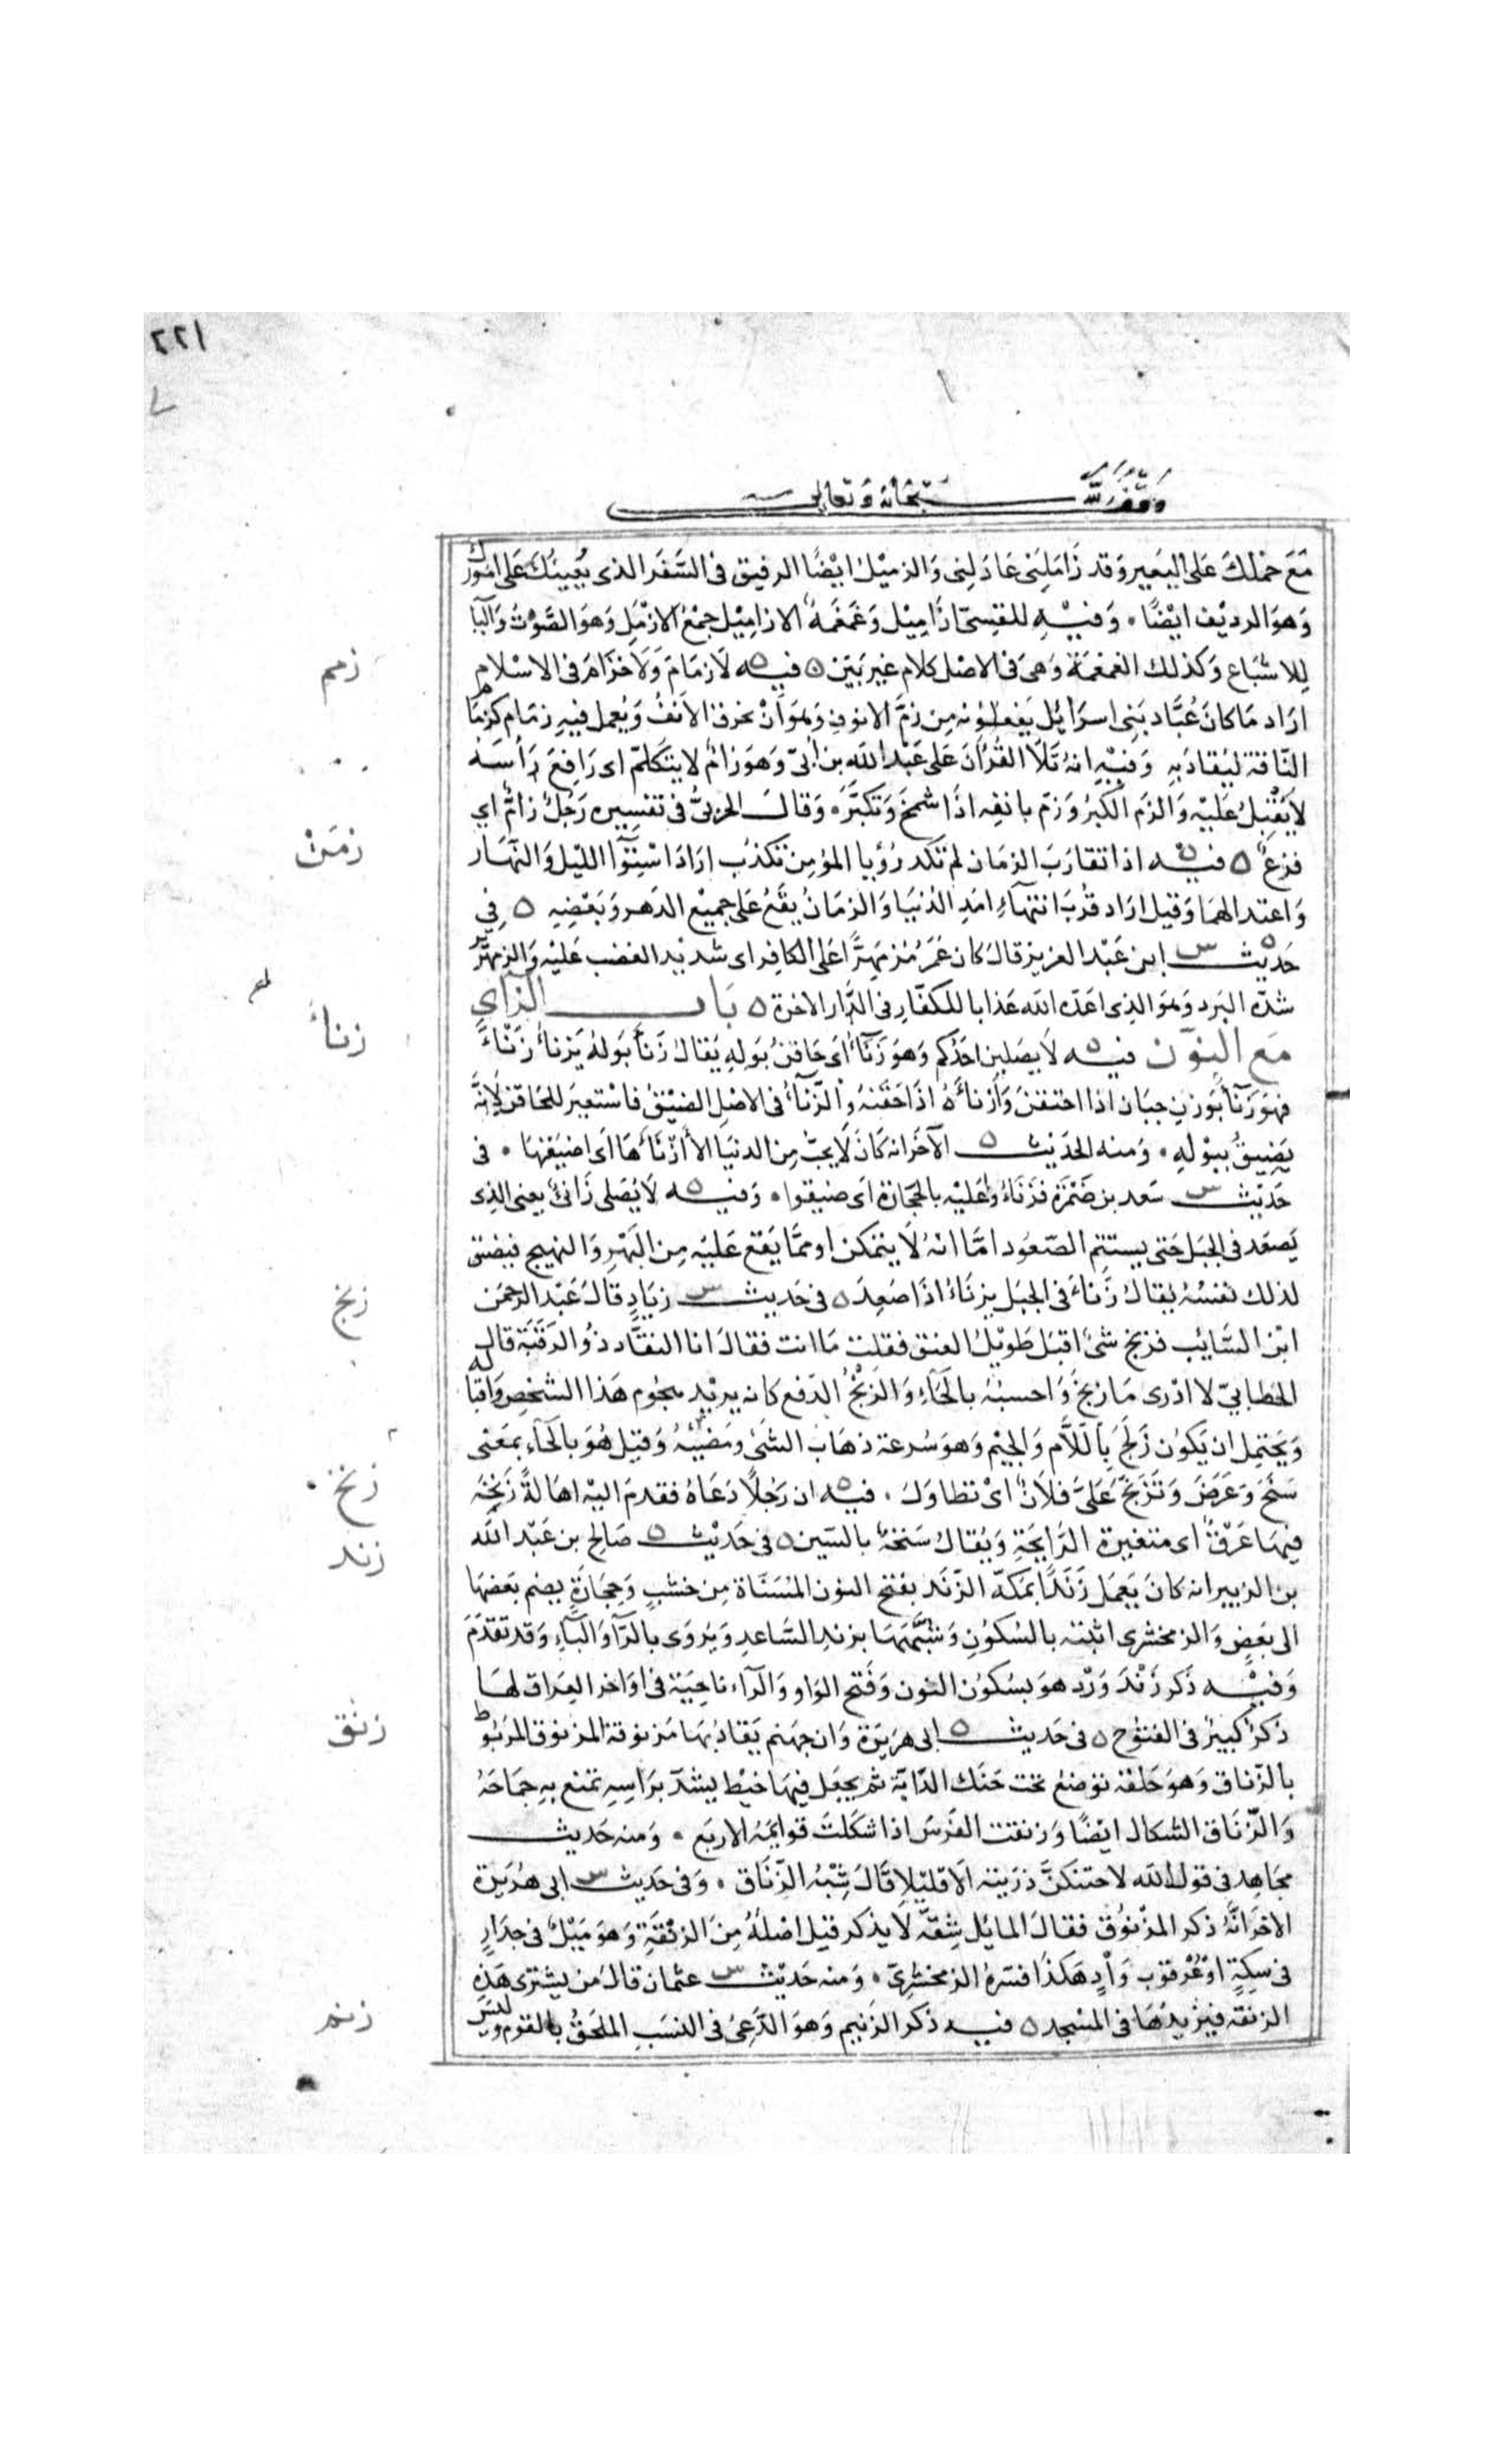 ٢٢١
وقف لله سبحانه وتعالى
مَعَ حملك عَلى البَعير وَقد زَامَلَنِى عَادَلنِى وَالزميْل ايْضًا الرفيق فى السَّفَر الذى يُعِينُكَ عَلى امُورك
وَهوَ الرديْف ايْضًا ۰ وَفيْه للقِسىّ ازَامِيْل وَغَمْغَمَةٌ الازامِيْل جمْعُ الازْمَل وَهوَ الصَّوْتُ وَاليَا
لِلاشْبَاع وَكذلك الغمغمَة وَهىَ فى الاصْل كلام غير بَيّن ٥ فيه لَا زمَامَ وَلَا خزَامَ فى الاسْلام
زمم
ارَاد مَا كانَ عُبَّاد بَنِى اسرَائِل يَفعَلوْنه مِن زمّ الانوف وَهوَ اَنْ يخرق الاَنفُ وَيُعمل فيهِ زمَام كزمَام
النّاقة ليُقادَ بهِ وَفيْهِ انهُ تَلَا القُرْانَ عَلى عَبْد الله بن اُبىّ وَهوَ زامٌّ لا يتكلّم اى رَافِعٌ رَأسَهُ
لا يُقْبِلُ عَليْه وَالزم الكبْرُ وَزمّ بانفِه اذَا شمخَ وَتكبَّرَ ۰ وَقالَ الحربىُّ فى تفسِيره رَجُلٌ زامٌّ اي
فزعٌ ٥ فيه اذا تقارَبَ الزمَان لم تكد رُؤيا المؤمِن تكذب ارَادَ اسْتِوَآ الليْل وَالنّهَار
زمَنْ
وَاعتدالهمَا وَقيل ارَاد قُربَ انتهآءِ امَدِ الدُنيَا وَالزمَانُ يقَعُ عَلى جميْع الدَهر وَبَعْضِهِ ٥ فِي
حَدِيث س ابن عَبْد العزيز قالَ كان عُمَرُ مُزْمَهِرًّا عَلى الكافِر اى شديْد الغضب عَليْه وَالزمهَرير
شدّة البَرد وَهوَ الذِى اعَدّه الله عَذابا للكفّارِ فى الدَّار الاخرة ٥ بَاب الزَاي
مَع النوّن فيه لَا يصَلين احَدُكم وَهوَ زَنَآءٌ اَى حَاقنٌ بُوله يُقالُ زَنَأ بَولهُ يَزنأ زَنْأً
زنأ
فهوَ زَنَآءٌ بوَزنِ جبَان اذا احتقنَ وَازنأهُ اذَا حَقَنهُ وَالزّنآءُ فى الاصْل الضيّقُ فاسْتعيرَ للحَاقنِ لِانّهُ
يَضِيقُ ببَوْلهِ ۰ وَمنه الحَديْث ٥ الآخَر انه كانَ لَا يحبّ مِن الدنيَا الّا اَزْنَأهَا اَى اضيَقهَا ۰ فى
حَديْث س سَعد بن ضَمْرَة فزَنَاُوا عَليْه بالحجَارة اَى ضيقوا ۰ وَفيه لَا يُصَلى زَانئٌ يعنى الذِى
يَصعَد فى الجبَل حَتى يستتم الصّعُود امَّا انهُ لَا يتمكن او ممَّا يَقع عَليْه مِن البُهْرِ وَالنهيج فيضيق
لذلك نفسُهُ يُقالُ زَنأَ فى الجبَل يزنَأُ اذَا صَعِدَ ٥ فى حَديث س زيَادٍ قالَ عَبْد الرحمن
زنج
ابن السَّايب فزنج شئٌ اقبَل طَويْل العنق فقلت مَا انت فقالَ انا النقّاد ذُو الرقبَة قال
الخطابىّ لا ادْرى مَا زنجَ وَاحسبُهُ بالحَاءِ وَالزنْجُ الدَفع كانه يريْد هجوم هَذا الشخصِ وَاقبَاله
وَيَحتمِل ان يَكوُن زَلَجَ بِاللَّام وَالجيْم وَهوَ سُرعة ذهَاب الشئ وَمَضيّهُ وَقيل هُوَ بالحَآءِ بمَعْنى
سَنَحَ وَعَرَضَ وَتَزَنّحَ عَلىَّ فلَانٌ اىْ تطاوَلَ ۰ فيه ان رَجُلًا دَعَاهُ فقدمَ اليْهِ اهَالةً زَنِخَةً
زنخ
فيهَا عَرْقٌ اى متغيرة الرَّايحَةِ وَيُقالُ سَنِخةٌ بالسّين ٥ فى حَديْث صَالح بن عَبْد الله
زند
بن الزبير انه كانَ يَعمَل زَنَدًا بمَكة الزَّنَد بفتح النون المُسَنّاة مِن خشبٍ وَحجَارَةٍ يضم بَعضهَا
الى بَعضٍ وَالزمخشرى اثبته بالسُكوْنِ وَشبّهَهَا بزند السَّاعدِ وَيُروَى بالرَّاءِ وَالبَآءِ وَقد تقدّمَ
وَفيْه ذكر زَنْدَ وَرْد هوَ بسُكوُن النون وَفَتح الوَاو وَالرَآء ناحيَة فى اوَاخر العرَاق لهَا
ذكرٌ كبيرٌ فى الفتوُح ٥ فى حَديث ٥ ابى هرَيرَة وَان جهنم يُقادُ بهَا مَزنوقة المزنوق المرْبُوط
زنق
بالزّناق وَهوَ حَلقة توْضَعُ تحت حَنَك الدّابّة ثم يجعَل فيهَا خيْط يشدّ برَاسِهِ تمنع بهِ جمَاحَهُ
وَالزّنَاق الشكال ايضًا وَزنقت الفرَسَ اذا شكلتَ قوايمَهُ الاربَع ۰ وَمنه حَديث
مجَاهِد فى قول الله لاحتنكنّ ذرّيته الّا قليْلا قَالَ شِبْهُ الزّنَاق ۰ وَفى حَديث س ابى هُرَيرَة
الاخرَ انَّهُ ذكر المزْنُوُق فقالَ المائل شِقّهُ لَا يذكر قيل اصْلهُ مِنَ الزنْقَةِ وَهوَ مَيْلٌ فى جدَارٍ
فى سِكةٍ اوْ عُرْقوب وَادٍ هَكذَا فسَرهُ الزمخشرِىّ ۰ وَمنه حَديْث س عثمان قالَ مَن يشترى هَذِهِ
الزنقة فيزيدُهَا فى المسْجد ٥ فيه ذكر الزَنيم وَهوَ الدَعِىُّ فى النسَبِ الملحَقُ بالقوم وَليسَ
زنم